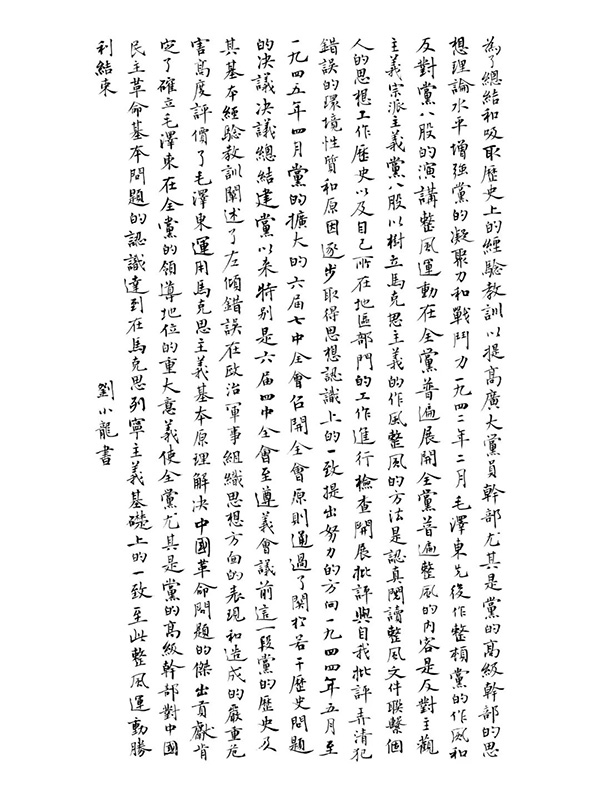 為了總結和吸取歷史上的經驗教訓以提高廣大黨員幹部尤其是黨的高級幹部的思
想理論水平增強黨的凝聚力和戰鬥力一九四二年二月毛澤東先後作整頓黨的作風和
反對黨八股的演講整風運動在全黨普遍展開全黨普遍整風的内容是反對主觀
主義宗派主義黨八股以樹立馬克思主義的作風整風的方法是認真閱讀整風文件聯繫個
人的思想工作歷史以及自己所在地區部門的工作進行檢查開展批評與自我批評弄清犯
錯誤的環境性質和原因逐步取得思想認識上的一致提出努力的方向一九四四年五月至
一九四五年四月黨的擴大的六届七中全會召開全會原則通過了關於若干歷史問題
的決議決議總結建黨以来特别是六届四中全會至遵義會議前這一段黨的歷史及
其基本經驗教訓闡述了左傾錯誤在政治軍事組織思想方面的表現和造成的嚴重危
害高度評價了毛澤東運用馬克思主義基本原理解決中國革命問題的傑出貢獻肯
定了確立毛澤東在全黨的領導地位的重大意義使全黨尤其是黨的高級幹部對中國
民主革命基本問題的認識達到在馬克思列寧主義基礎上的一致至此整風運動勝
利結束
劉小龍書